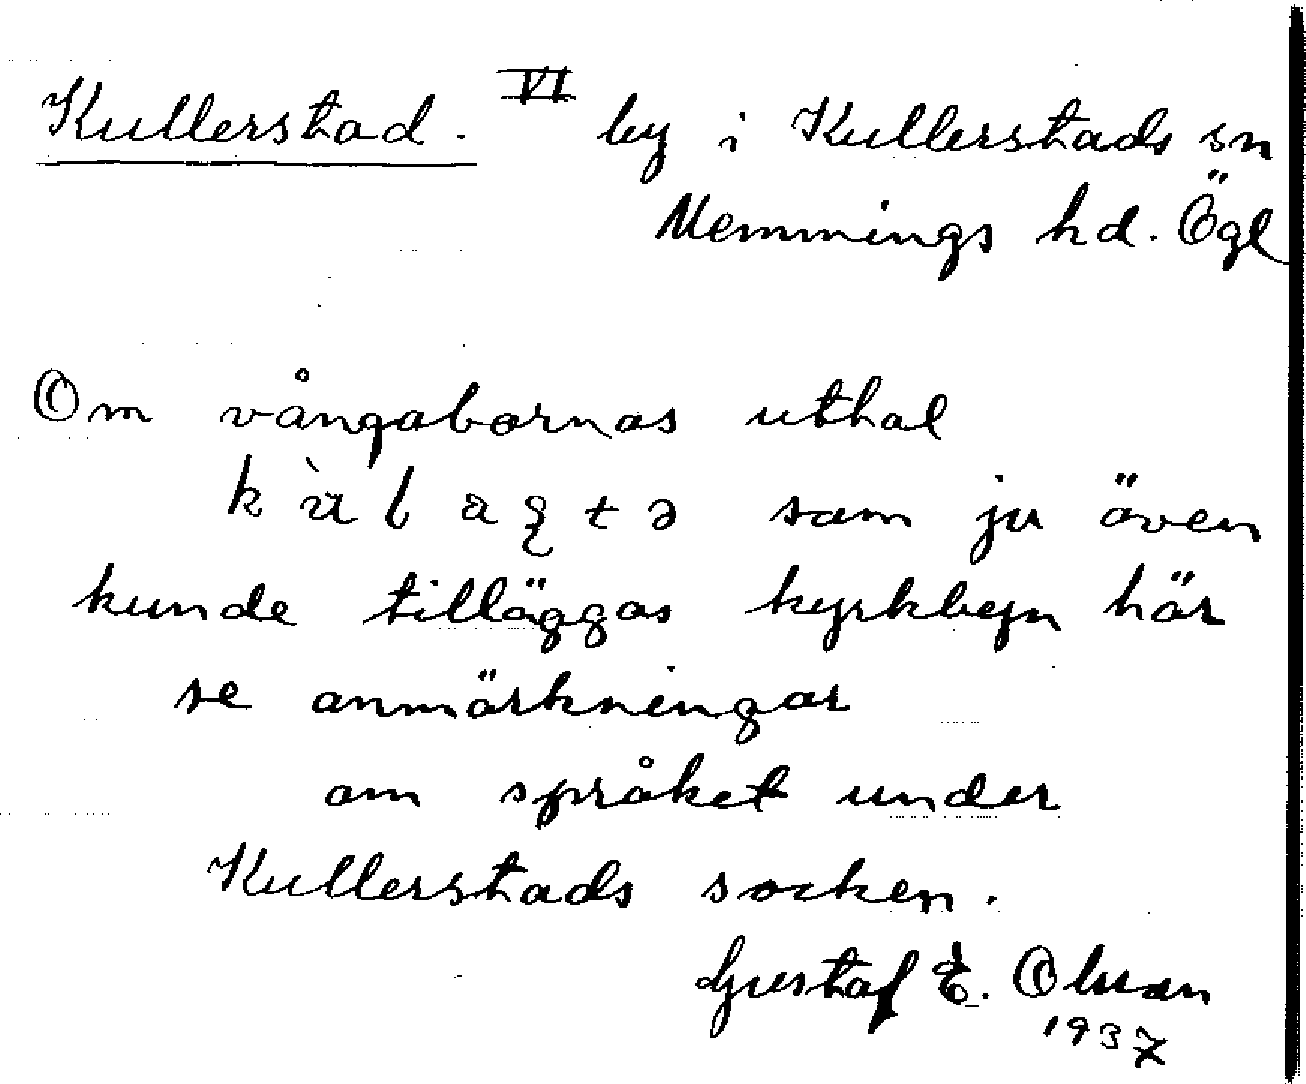 Kullerstad. VI by i Kullerstads sn
Memmings hd. Ögl
Om vångabornas uttal
som ju även
kunde tilläggas kyrkbyn här
se anmärkningar
om språket under
Kullerstads socken.
Gustaf E. Olsson
1937